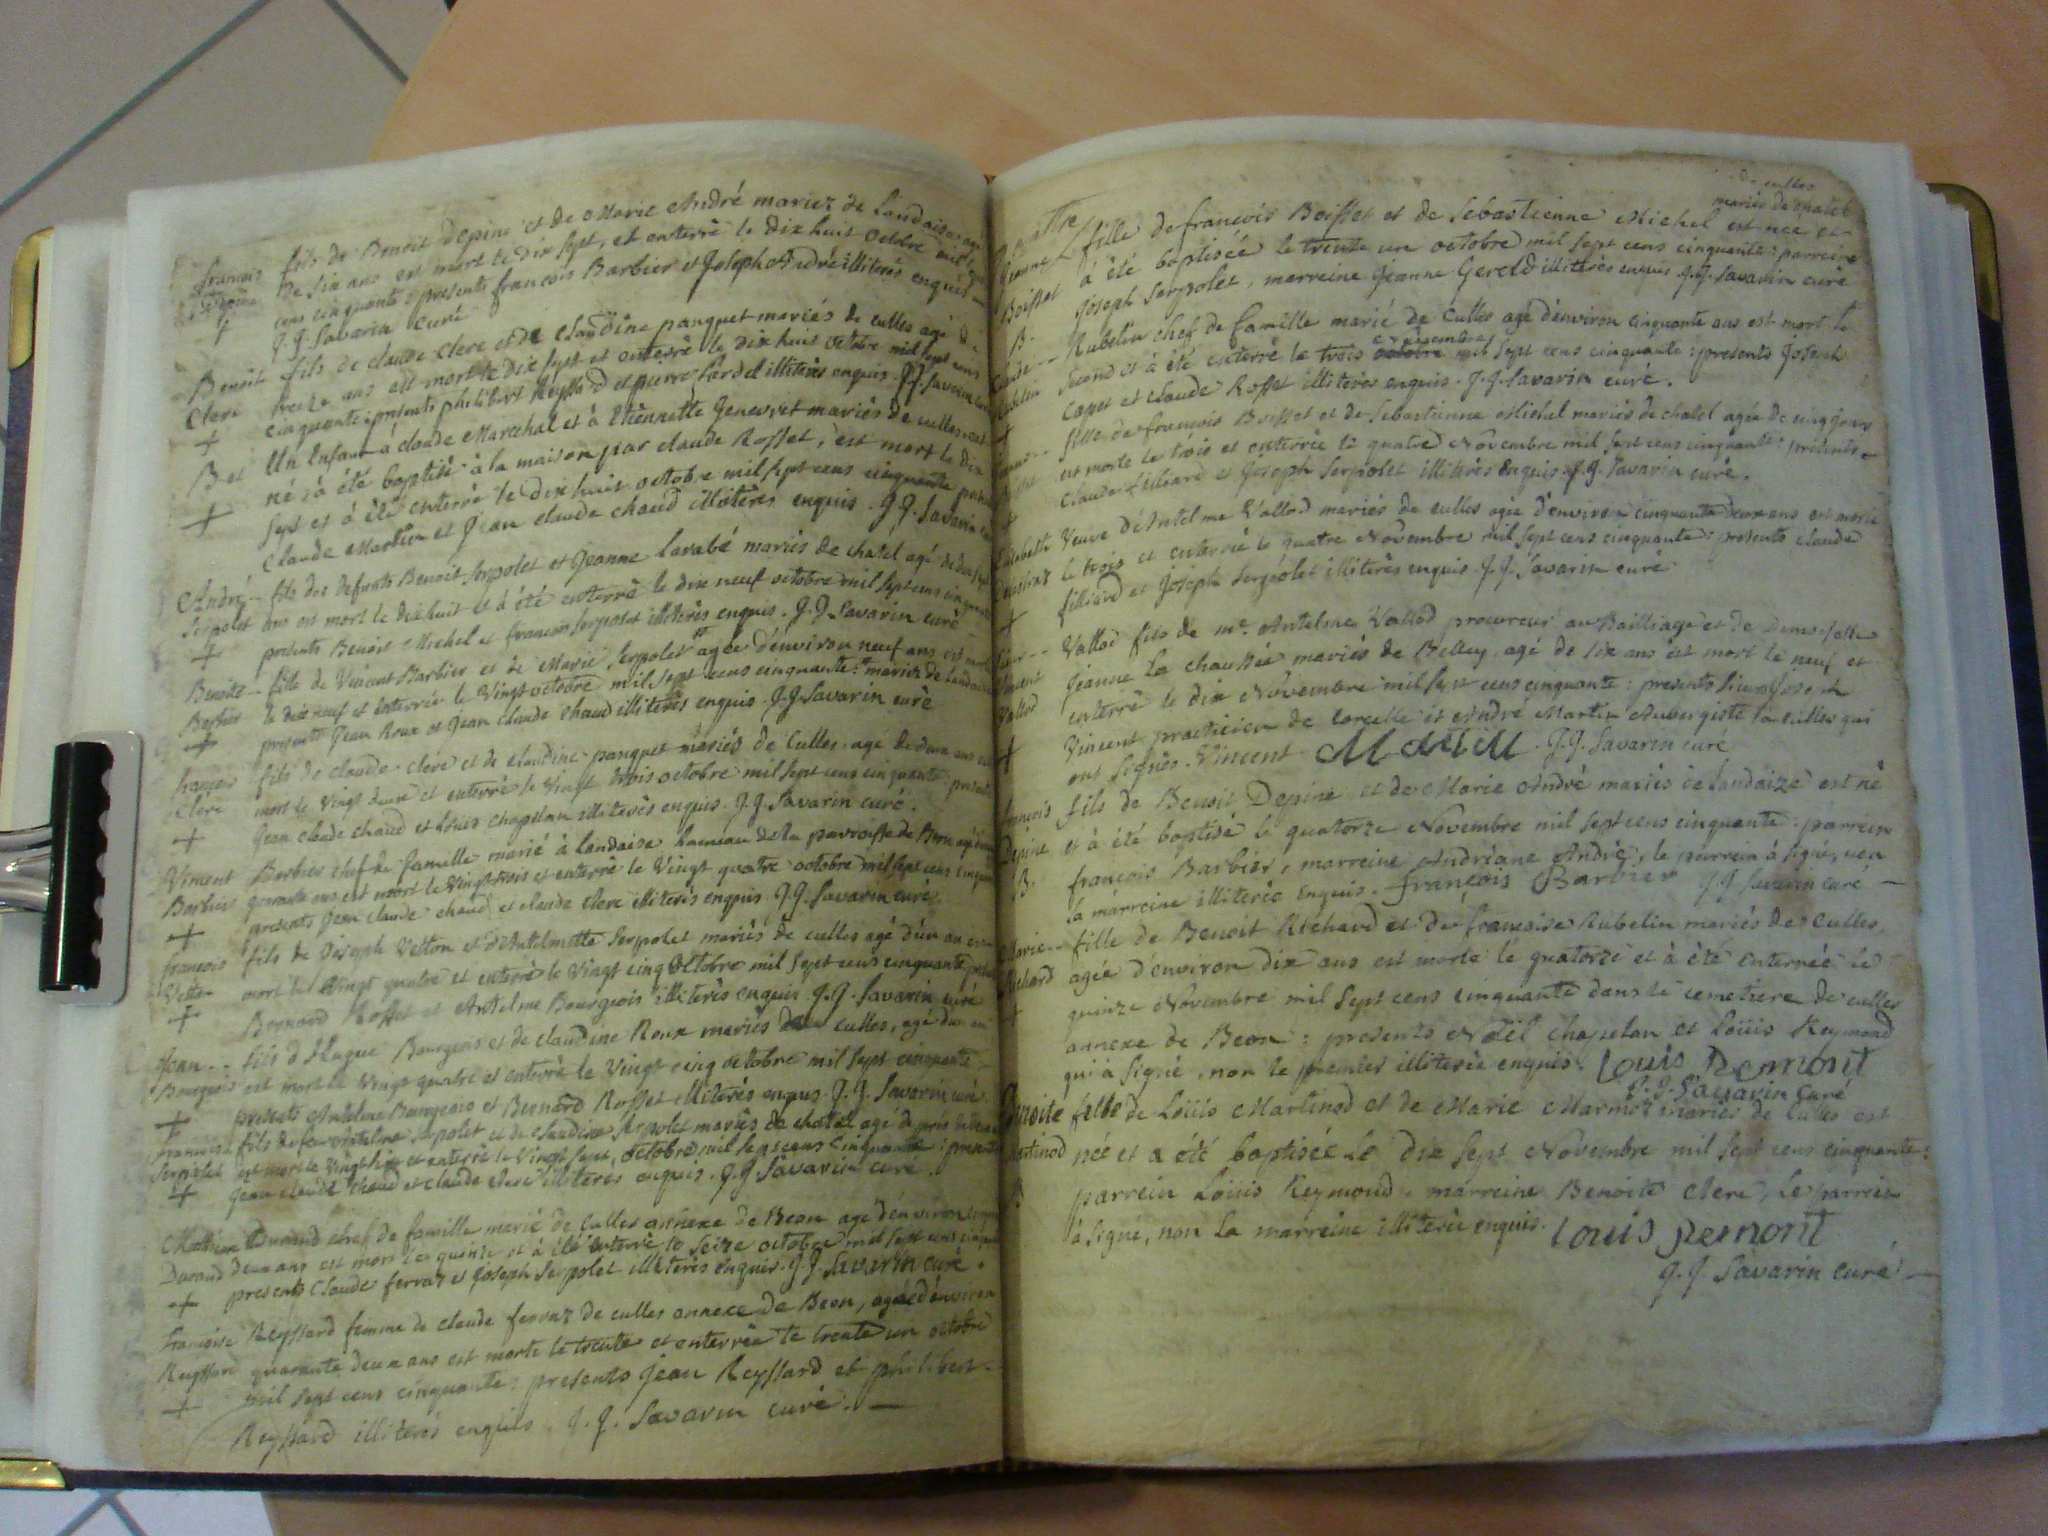 françois fils de Benoit Depine et de Marie André mariez de Landaise agé
Depine de six ans est mort le dix sept, et enterré le dix huit octobre mil sept
+ cens cinquante : presents françois Barbier et Joseph André illiterés enquis
J.J. Savarin curé
Benoit fils de claude Clerc et de Claudine panquet mariés de culles agé de
Clerc treize ans est mort le dix sept et enterré le dix huit octobre mil sept cens
+ cinquante : presents philibert Reyssard et pierre Sardel illiterés enquis. J.J. Savarin curé
B et Un Enfant à claude Marechal et à Etiennette Genevret mariés de culles est
né, à été baptisé à la maison par claude Rosset, est mort le dix
+ sept et à été enterré le dix huit octobre mil sept cens cinquante presents
Claude Martin et Jean claude chaud illiterés enquis. J.J. Savarin curé
André fils des defunts Benoit Serpolet et Jeanne Larabé mariés de chatel agé de dix sept
Serpolet ans est mort le dixhuit et à été enterré le dix neuf octobre mil sept cens cinquante
+ presents Benoit Michel et françois Serpolet illiterés enquis. J.J. Savarin curé
Benoite fille de Vincent Barbier et de Marie Serpolet agée d'environ neuf ans est morte
Barbier le dix neuf et enterrée le Vingt octobre mil sept cens cinquante : mariez de Landaise
+ presents Jean Roux et Jean Claude chaud illiterés enquis. J.J. Savarin curé
françois fils de claude clerc et de claudine panquet mariés de Culles agé de deux ans est
Clerc mort le Vingt deux et enterré le Vingt trois octobre mil sept cens cinquante presents
+ Jean claude chaud et Louis chapelan illiterés enquis. J.J. Savarin curé.
Vincent Barbier chef de famille marié à Landaise hameau de la parroisse de Beon agé d'environ
Barbier quarante ans est mort le Vingt trois et enterré le Vingt quatre octobre mil sept cens cinquante
+ presents Jean claude chaud et claude clerc illiterés enquis J.J. Savarin curé.
françois fils de Joseph Vetton et d'Antelmette Serpolet mariés de culles agé d'un an est
Vetton mort le Vingt quatre et enterré le Vingt cinq Octobre mil sept cens cinquante presents
+ Bernard Rosset et Antelme Bourgeois illiterés enquis J.J. Savarin curé
Jean fils d'Hugue Bourgeois et de claudine Roux mariés de culles, agé d'un an
Bourgeois est mort le Vingt quatre et enterré le Vingt cinq octobre mil sept cinquante
+ presents Antelme Bourgeois et Bernard Rosset illiterés enquis J.J. Savarin curé.
françois fils de feu Antelme Serpolet et de claudine Serpolet mariés de chatel agé de
Serpolet est mort le Vingt six et enterré le Vingt sept, octobre mil sept cens cinquante : presents
+ Jean claude chaud et claude clerc illiterés enquis. J.J. Savarin curé.
Mathieu Durand chef de famille marié de Culles annexe de Beon agé d'environ cinquante
Durand deux ans est mort le quinze et à été enterré le seize octobre mil sept cens cinquante
+ presents Claude ferraz et Joseph Serpolet illiterés enquis. J.J. Savarin curé.
françoise Reyssard femme de claude ferraz de culles annexe de Beon, agée d'environ
Reyssard quarante deux ans est morte le trente et enterrée le trente un octobre
+ mil sept cens cinquante : presents Jean Reyssard et philibert
Reyssard illiterés enquis. J.J. Savarin curé.
de culles
mariés de chatel
Jeanne fille de françois Boisset et de Sebastienne Michel est née et
Boisset à été baptisée le trente un octobre mil sept cens cinquante : parrein
B. Joseph Serpolet, marreine Jeanne Gereld illiterés enquis J.J. Savarin curé
Claude Rubelin chef de famille marié de Culles agé d'environ cinquante ans est mort le
Rubelin second et à été enterré le trois octobre novembre mil sept cens cinquante : presents Joseph
+ Capet et claude Rosset illiterés enquis. J.J. Savarin curé.
Jeanne fille de françois Boisset et de Sebastienne Michel mariés de chatel agée de cinq jours
Boisset est morte le trois et enterrée le quatre Novembre mil sept cens cinquante : présents
+ Claude filliard et Joseph Serpolet illiterés Enquis. J.J. Savarin curé.
Elisabeth Veuve d'Antelme Vallod mariés de culles agée d'environ cinquante deux ans est morte
le trois et enterrée le quatre Novembre mil sept cens cinquante : presents claude
+ filliard et Joseph Serpolet illiterés enquis. J.J. Savarin curé
Vincent Vallod fils de me. Antelme Vallod procureur au Bailliage et de Demoiselle
Vallod Jeanne La chaussée mariés de Belley, agé de six ans est mort le neuf et
enterré le dix Novembre mil sept cens cinquante : presents Sieur Joseph
+ Vincent practicien de Corcelle et André Martin Aubergiste à culles qui
ont signés. Vincent Martin. J.J. Savarin curé
françois fils de Benoit Depine et de Marie André mariés de Landaize est né
Depine et à été baptisé le quatorze Novembre mil sept cens cinquante : parrein
B. françois Barbier, marreine Andréane André, le parrein à signé, non
la marreine illiterée Enquis. françois Barbier J.J. Savarin curé
Marie fille de Benoit Richard et de françoise Rubelin mariés de Culles,
Richard agée d'environ dix ans est morte le quatorze et à été enterrée le
+ quinze Novembre mil sept cens cinquante dans le cemetiere de culles
annexe de Beon : presents Noël chapelan et Loüis Reymond
qui à signé, non le premier illiterée enquis. Louis Remont
J.J. Savarin curé
Benoite fille de Loüis Martinod et de Marie Marmot mariés de Culles est
Martinod née et a été baptisée le dix sept Novembre mil sept cens cinquante :
B. parrein Loüis Reymond, marreine Benoite clerc, le parrein
à signé, non la marreine illiterée enquis. louis remont
J.J. Savarin curé